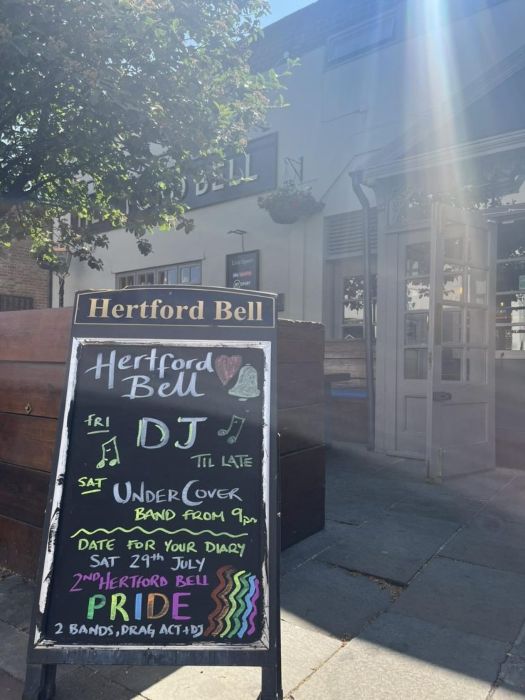 BELL
Hertford Bell
Hertford
Bell
FRI
DJ
TIL LATE
SAT
UNDERCOVER
BAND FROM 9pm
DATE FOR YOUR DIARY
SAT 29th JULY
2ND HERTFORD BELL
PRIDE
2 BANDS, DRAG ACT + DJ